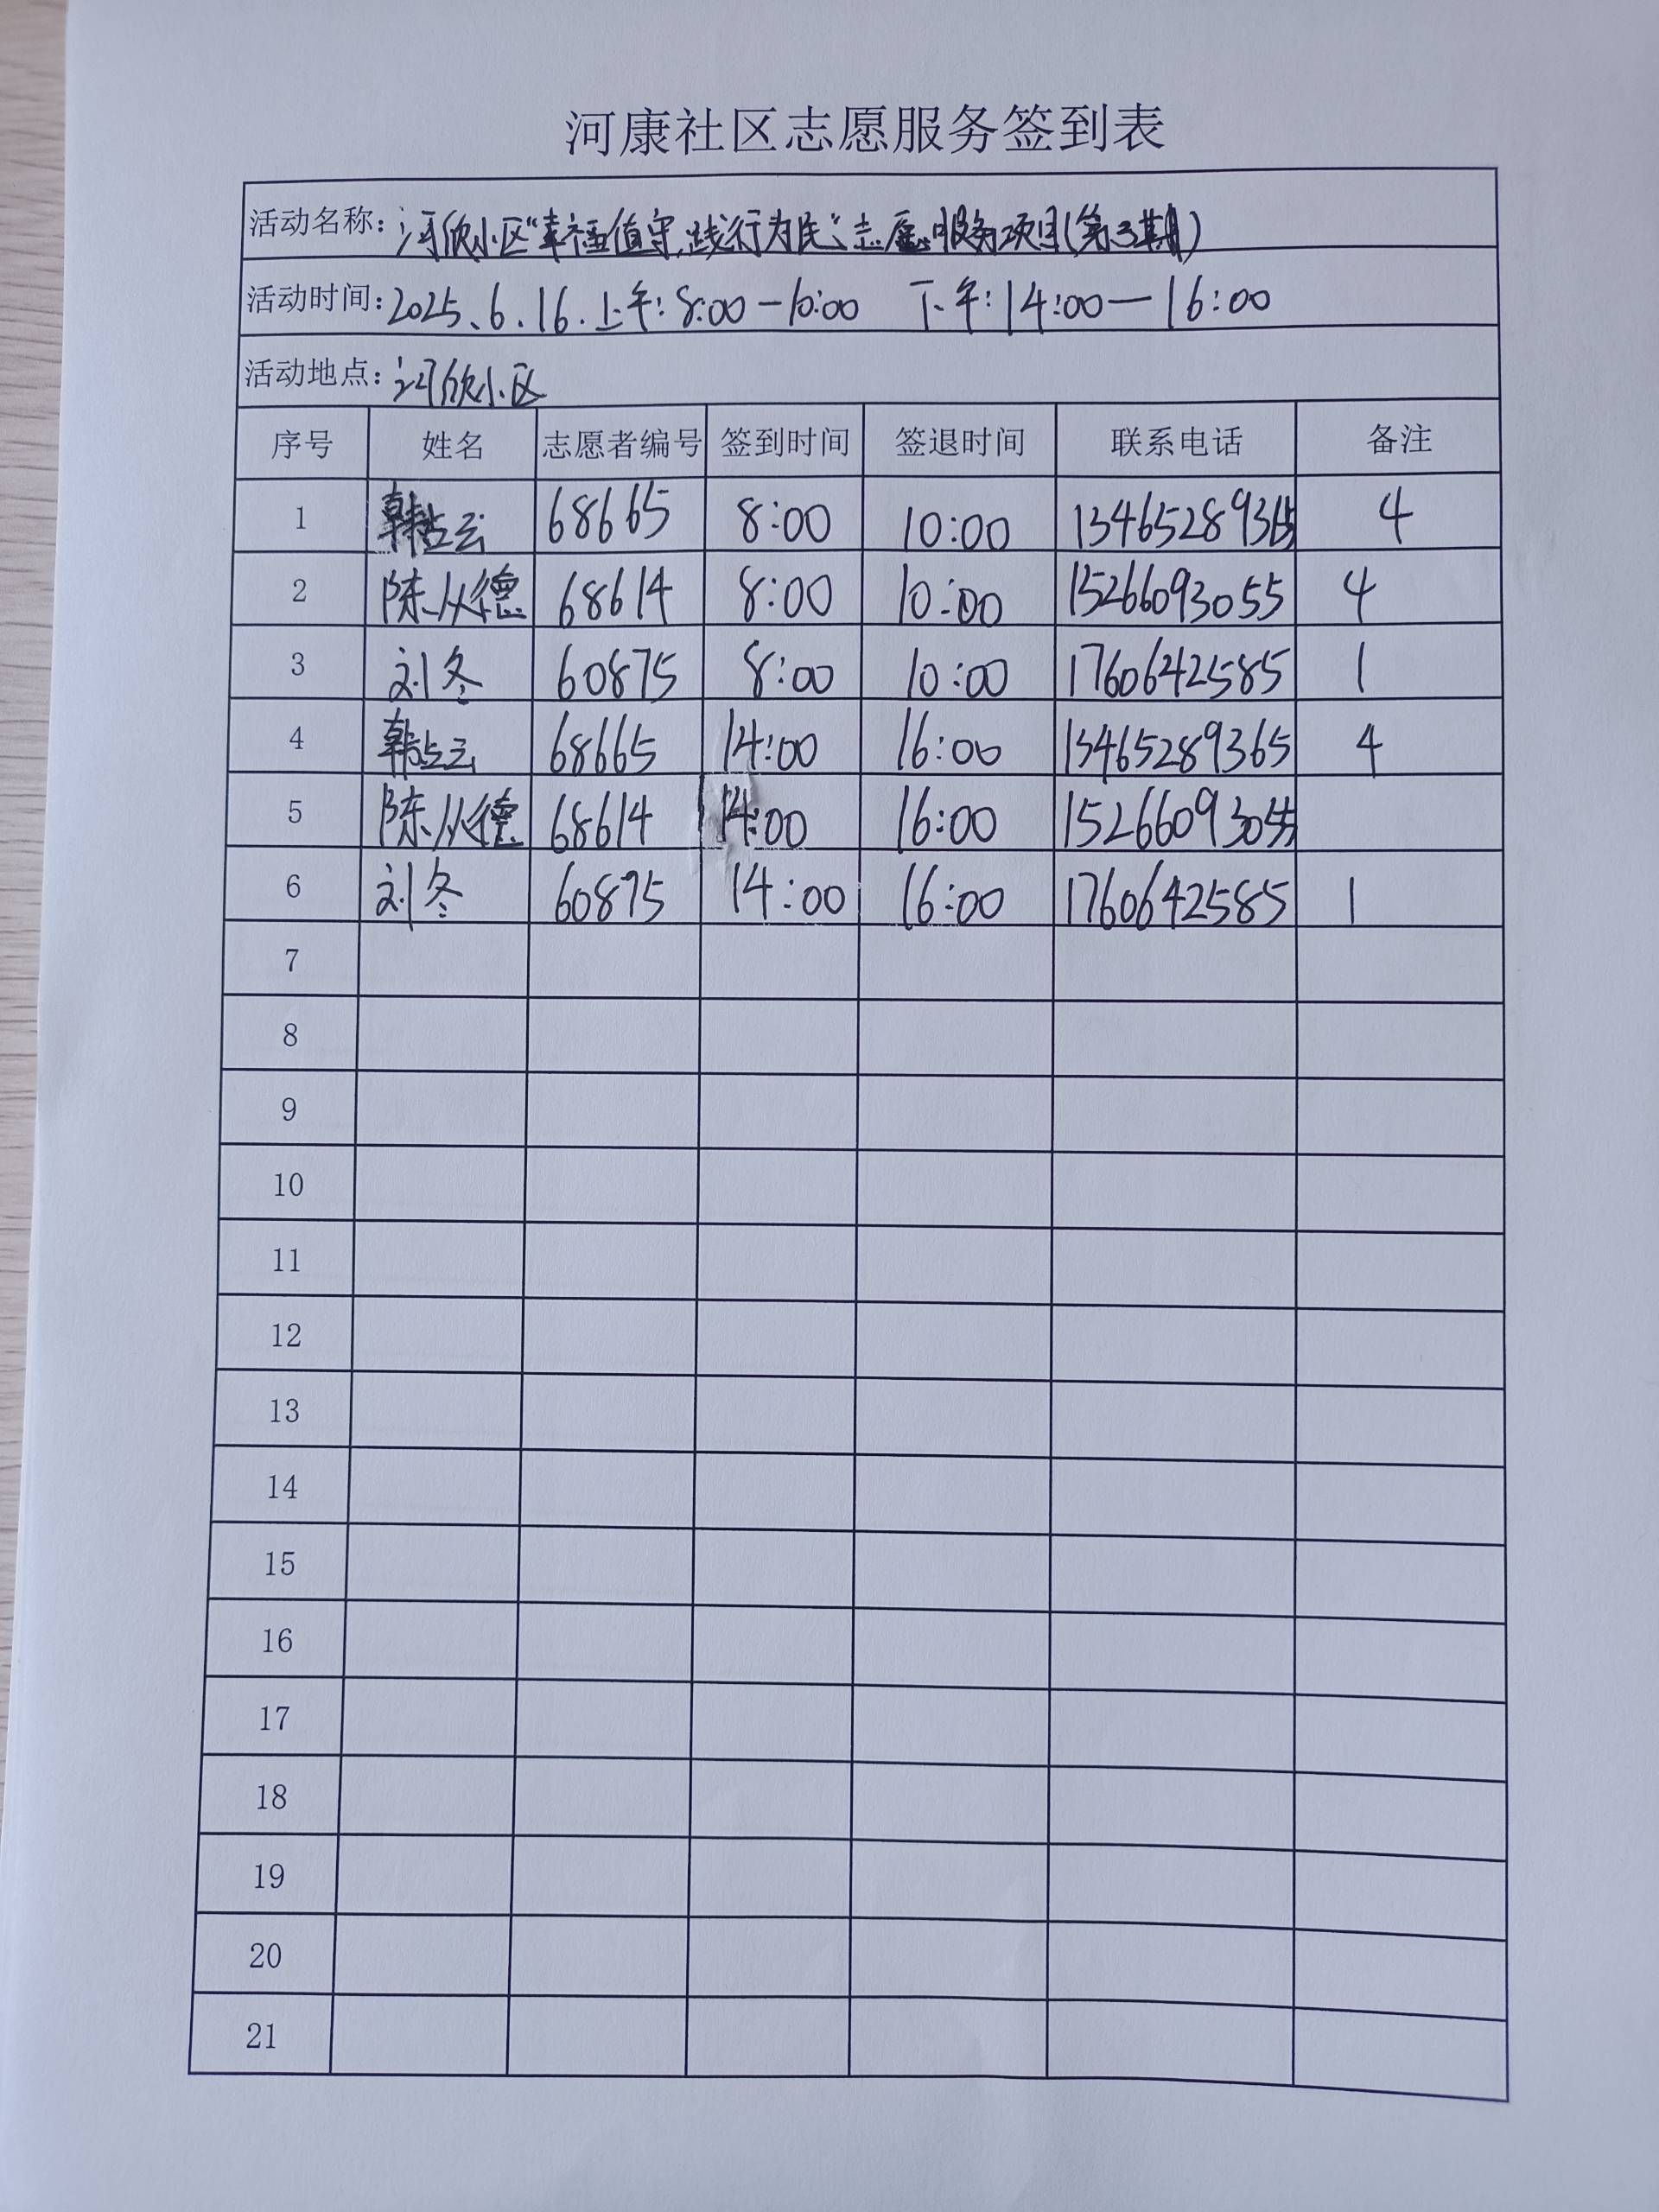 河康社区志愿服务签到表
活动名称：河欣小区“幸福值守，践行为民”志愿服务项目(第3期)
活动时间：2025、6.16.上午：8:00—10:00 下午：14:00—16:00
活动地点：河欣小区
序号 姓名 志愿者编号 签到时间 签退时间 联系电话 备注
1 韩占云 68665 8:00 10:00 13465289365 4
2 陈从德 68614 8:00 10:00 15266093055 4
3 刘冬 60875 8:00 10:00 1760642585 1
4 韩占云 68665 14:00 16:00 13465289365 4
5 陈从德 68614 14:00 16:00 15266093055
6 刘冬 60875 14:00 16:00 1760642585 1
7
8
9
10
11
12
13
14
15
16
17
18
19
20
21